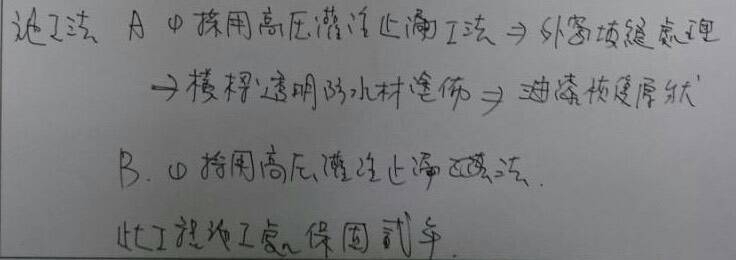 施工法 A ① 採用高压灌注止漏工法 ⇒ 外窗填縫處理
→ 樓梯透明防水材塗佈 ⇒ 油漆恢復原狀
B. ① 採用高压灌注止漏工法.
此工程施工處保固貳年.